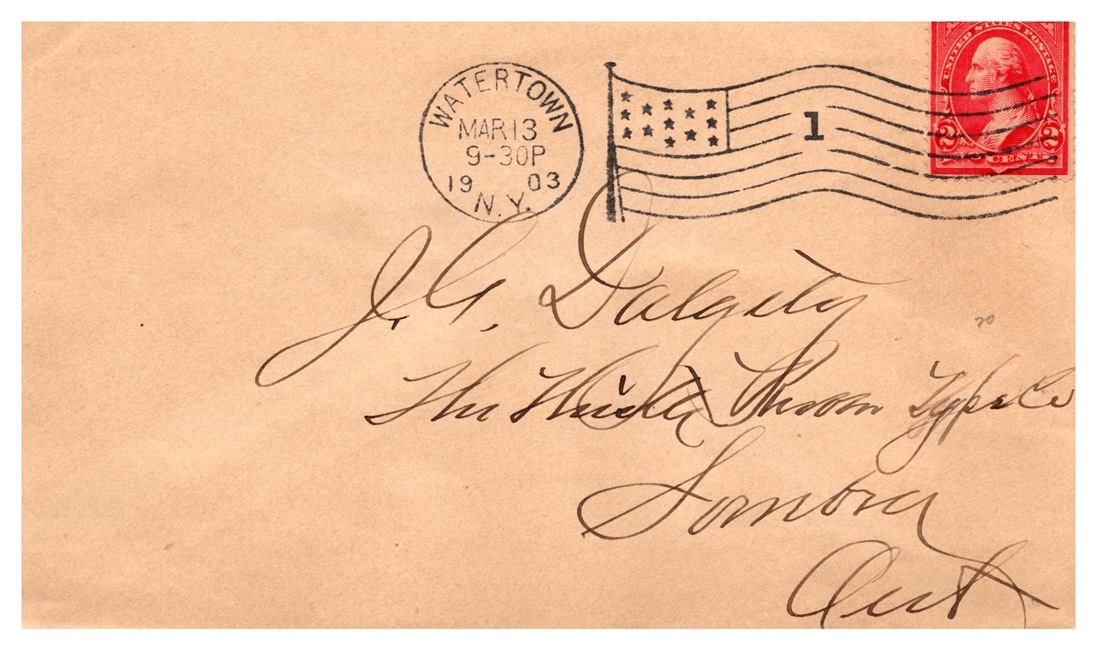 UNITED STATES POSTAGE
2 2
CENTS
WATERTOWN
MAR 13
9-30P
19 03
N.Y.
1
J. G. Dalgety
20
The Type Co
Sombra
Ont